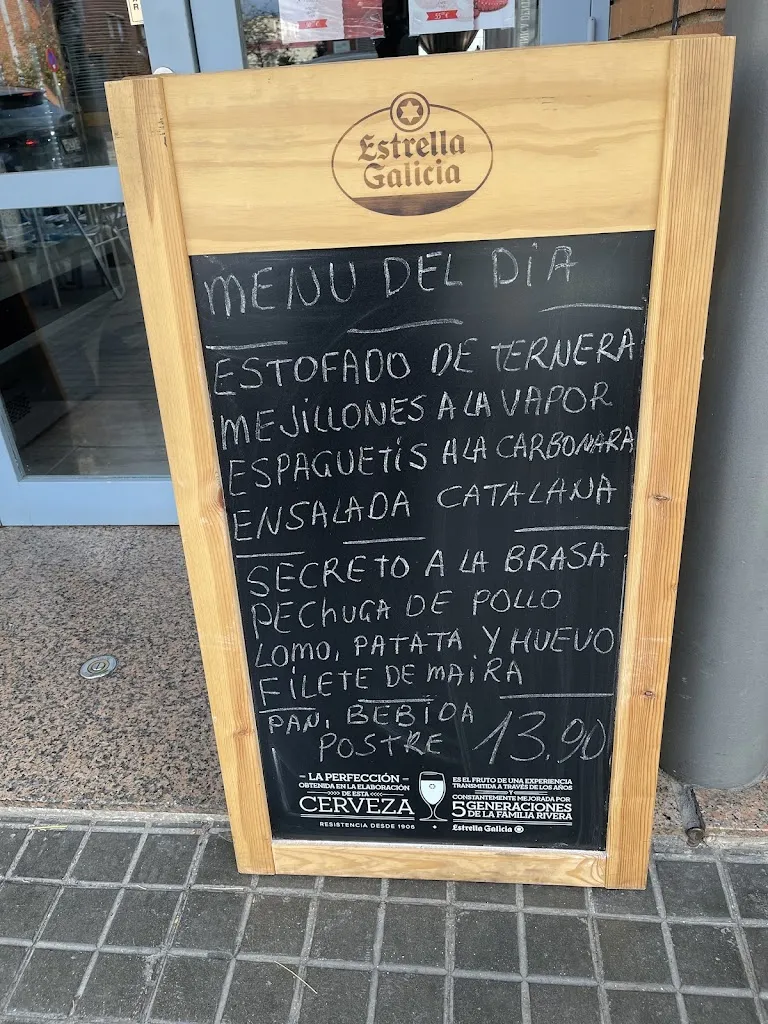 Estrella
Galicia
MENU DEL DIA
ESTOFADO DE TERNERA
MEJILLONES A LA VAPOR
ESPAGUETIS A LA CARBONARA
ENSALADA CATALANA
SECRETO A LA BRASA
PECHUGA DE POLLO
LOMO, PATATA Y HUEVO
FILETE DE MAIRA
PAN, BEBIDA
POSTRE 13,90
– LA PERFECCIÓN –
OBTENIDA EN LA ELABORACIÓN
DE ESTA
CERVEZA
RESISTENCIA DESDE 1906
ES EL FRUTO DE UNA EXPERIENCIA
TRANSMITIDA A TRAVÉS DE LOS AÑOS
Y
CONSTANTEMENTE MEJORADA POR
5 GENERACIONES
DE LA FAMILIA RIVERA
Estrella Galicia